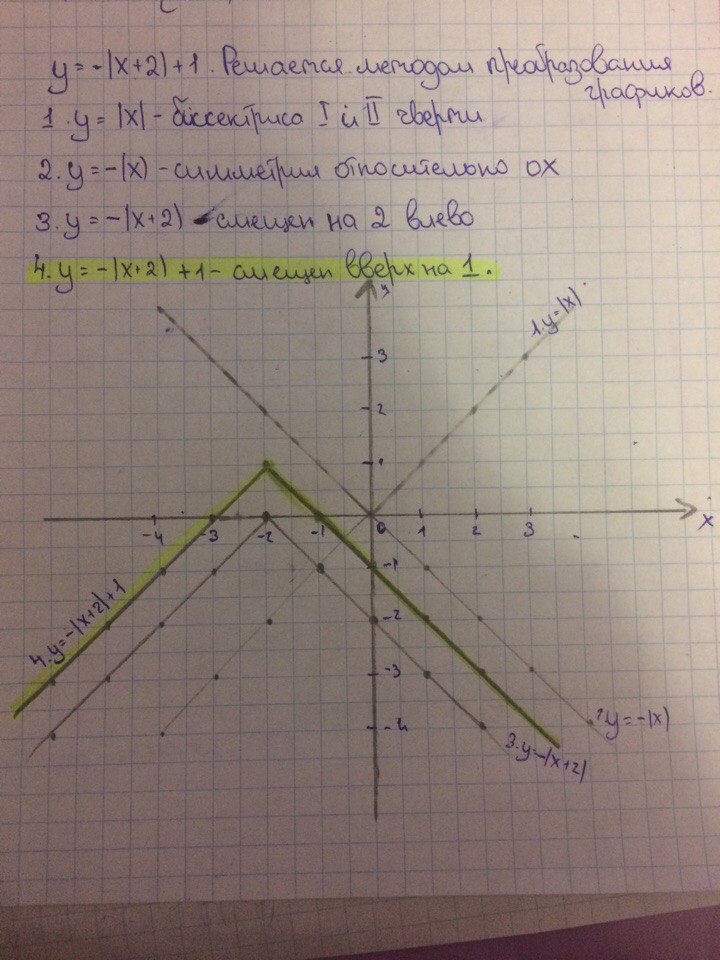 y = -|x+2|+1. Решается методом преобразования
графиков.
1. y = |x| - биссектриса I и II чверти
2. y = -|x| - симметрия относительно ох
3. y = -|x+2| - смещен на 2 влево
4. y = -|x+2| +1 - смещен вверх на 1.
y
1. y=|x|
3
2
1
-4 -3 -2 -1 0 1 2 3
x
-1
-2
-3
-4
4. y=-|x+2|+1
y=-|x|
3. y=-|x+2|